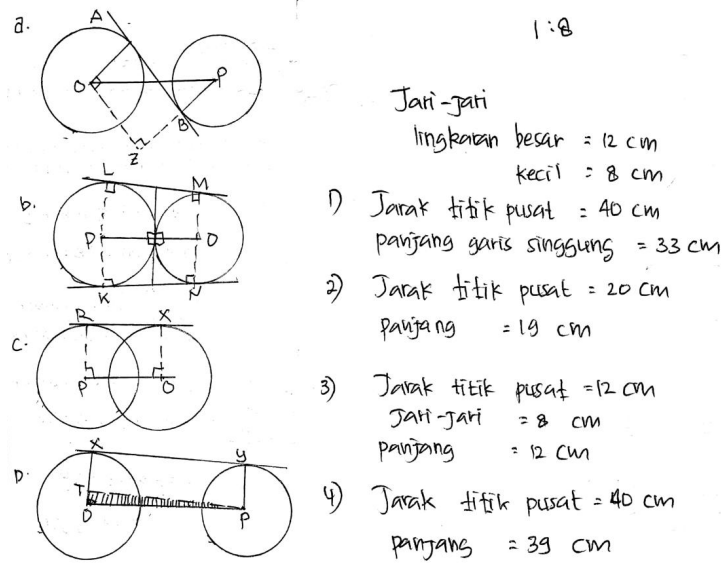 a.
A
O
P
B
Z
b.
L
M
P
O
K
N
C.
R
X
P
O
D.
X
y
T
O
P
1:8
Jari-jari
lingkaran besar = 12 cm
kecil = 8 cm
1) Jarak titik pusat = 40 cm
panjang garis singgung = 33 cm
2) Jarak titik pusat = 20 cm
panjang = 19 cm
3) Jarak titik pusat = 12 cm
Jari-jari = 8 cm
panjang = 12 cm
4) Jarak titik pusat = 40 cm
panjang = 39 cm